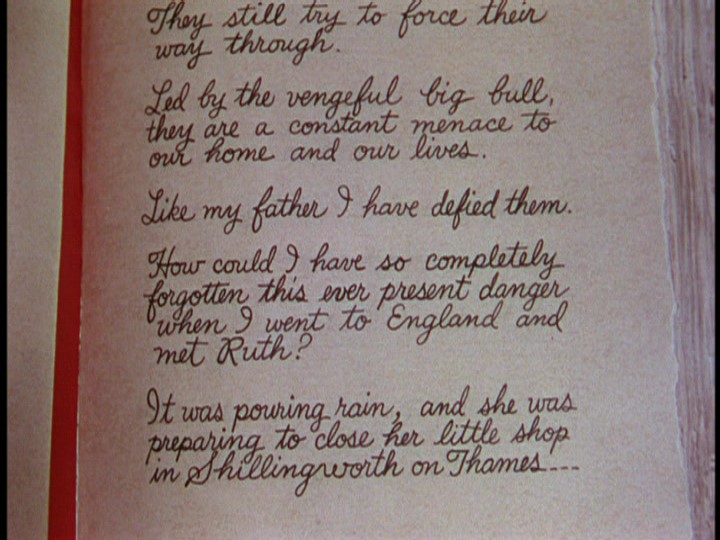 They still try to force their
way through.
Led by the vengeful big bull,
they are a constant menace to
our home and our lives.
Like my father I have defied them.
How could I have so completely
forgotten this ever present danger
when I went to England and
met Ruth?
It was pouring rain, and she was
preparing to close her little shop
in Shillingworth on Thames---